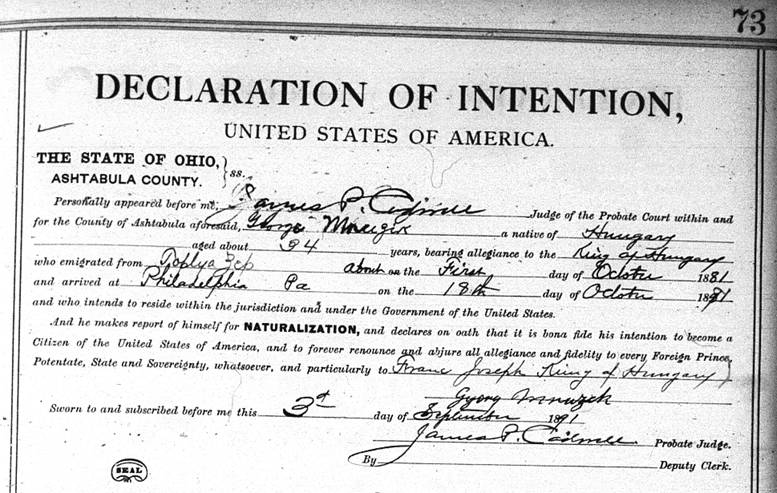 73
DECLARATION OF INTENTION,
UNITED STATES OF AMERICA.
THE STATE OF OHIO,
ASHTABULA COUNTY. } ss.
Personally appeared before me, James P. Cadwell Judge of the Probate Court within and
for the County of Ashtabula aforesaid, George a native of Hungary
aged about 34 years, bearing allegiance to the King of Hungary
who emigrated from about on the First day of October 1881
and arrived at Philadelphia Pa on the 18th day of October 1881
and who intends to reside within the jurisdiction and under the Government of the United States.
And he makes report of himself for NATURALIZATION, and declares on oath that it is bona fide his intention to become a
Citizen of the United States of America, and to forever renounce and abjure all allegiance and fidelity to every Foreign Prince,
Potentate, State and Sovereignty, whatsoever, and particularly to Franc Joseph King of Hungary
Gyorg
Sworn to and subscribed before me this 3d day of September 1891
James P. Cadwell Probate Judge.
By Deputy Clerk.
SEAL